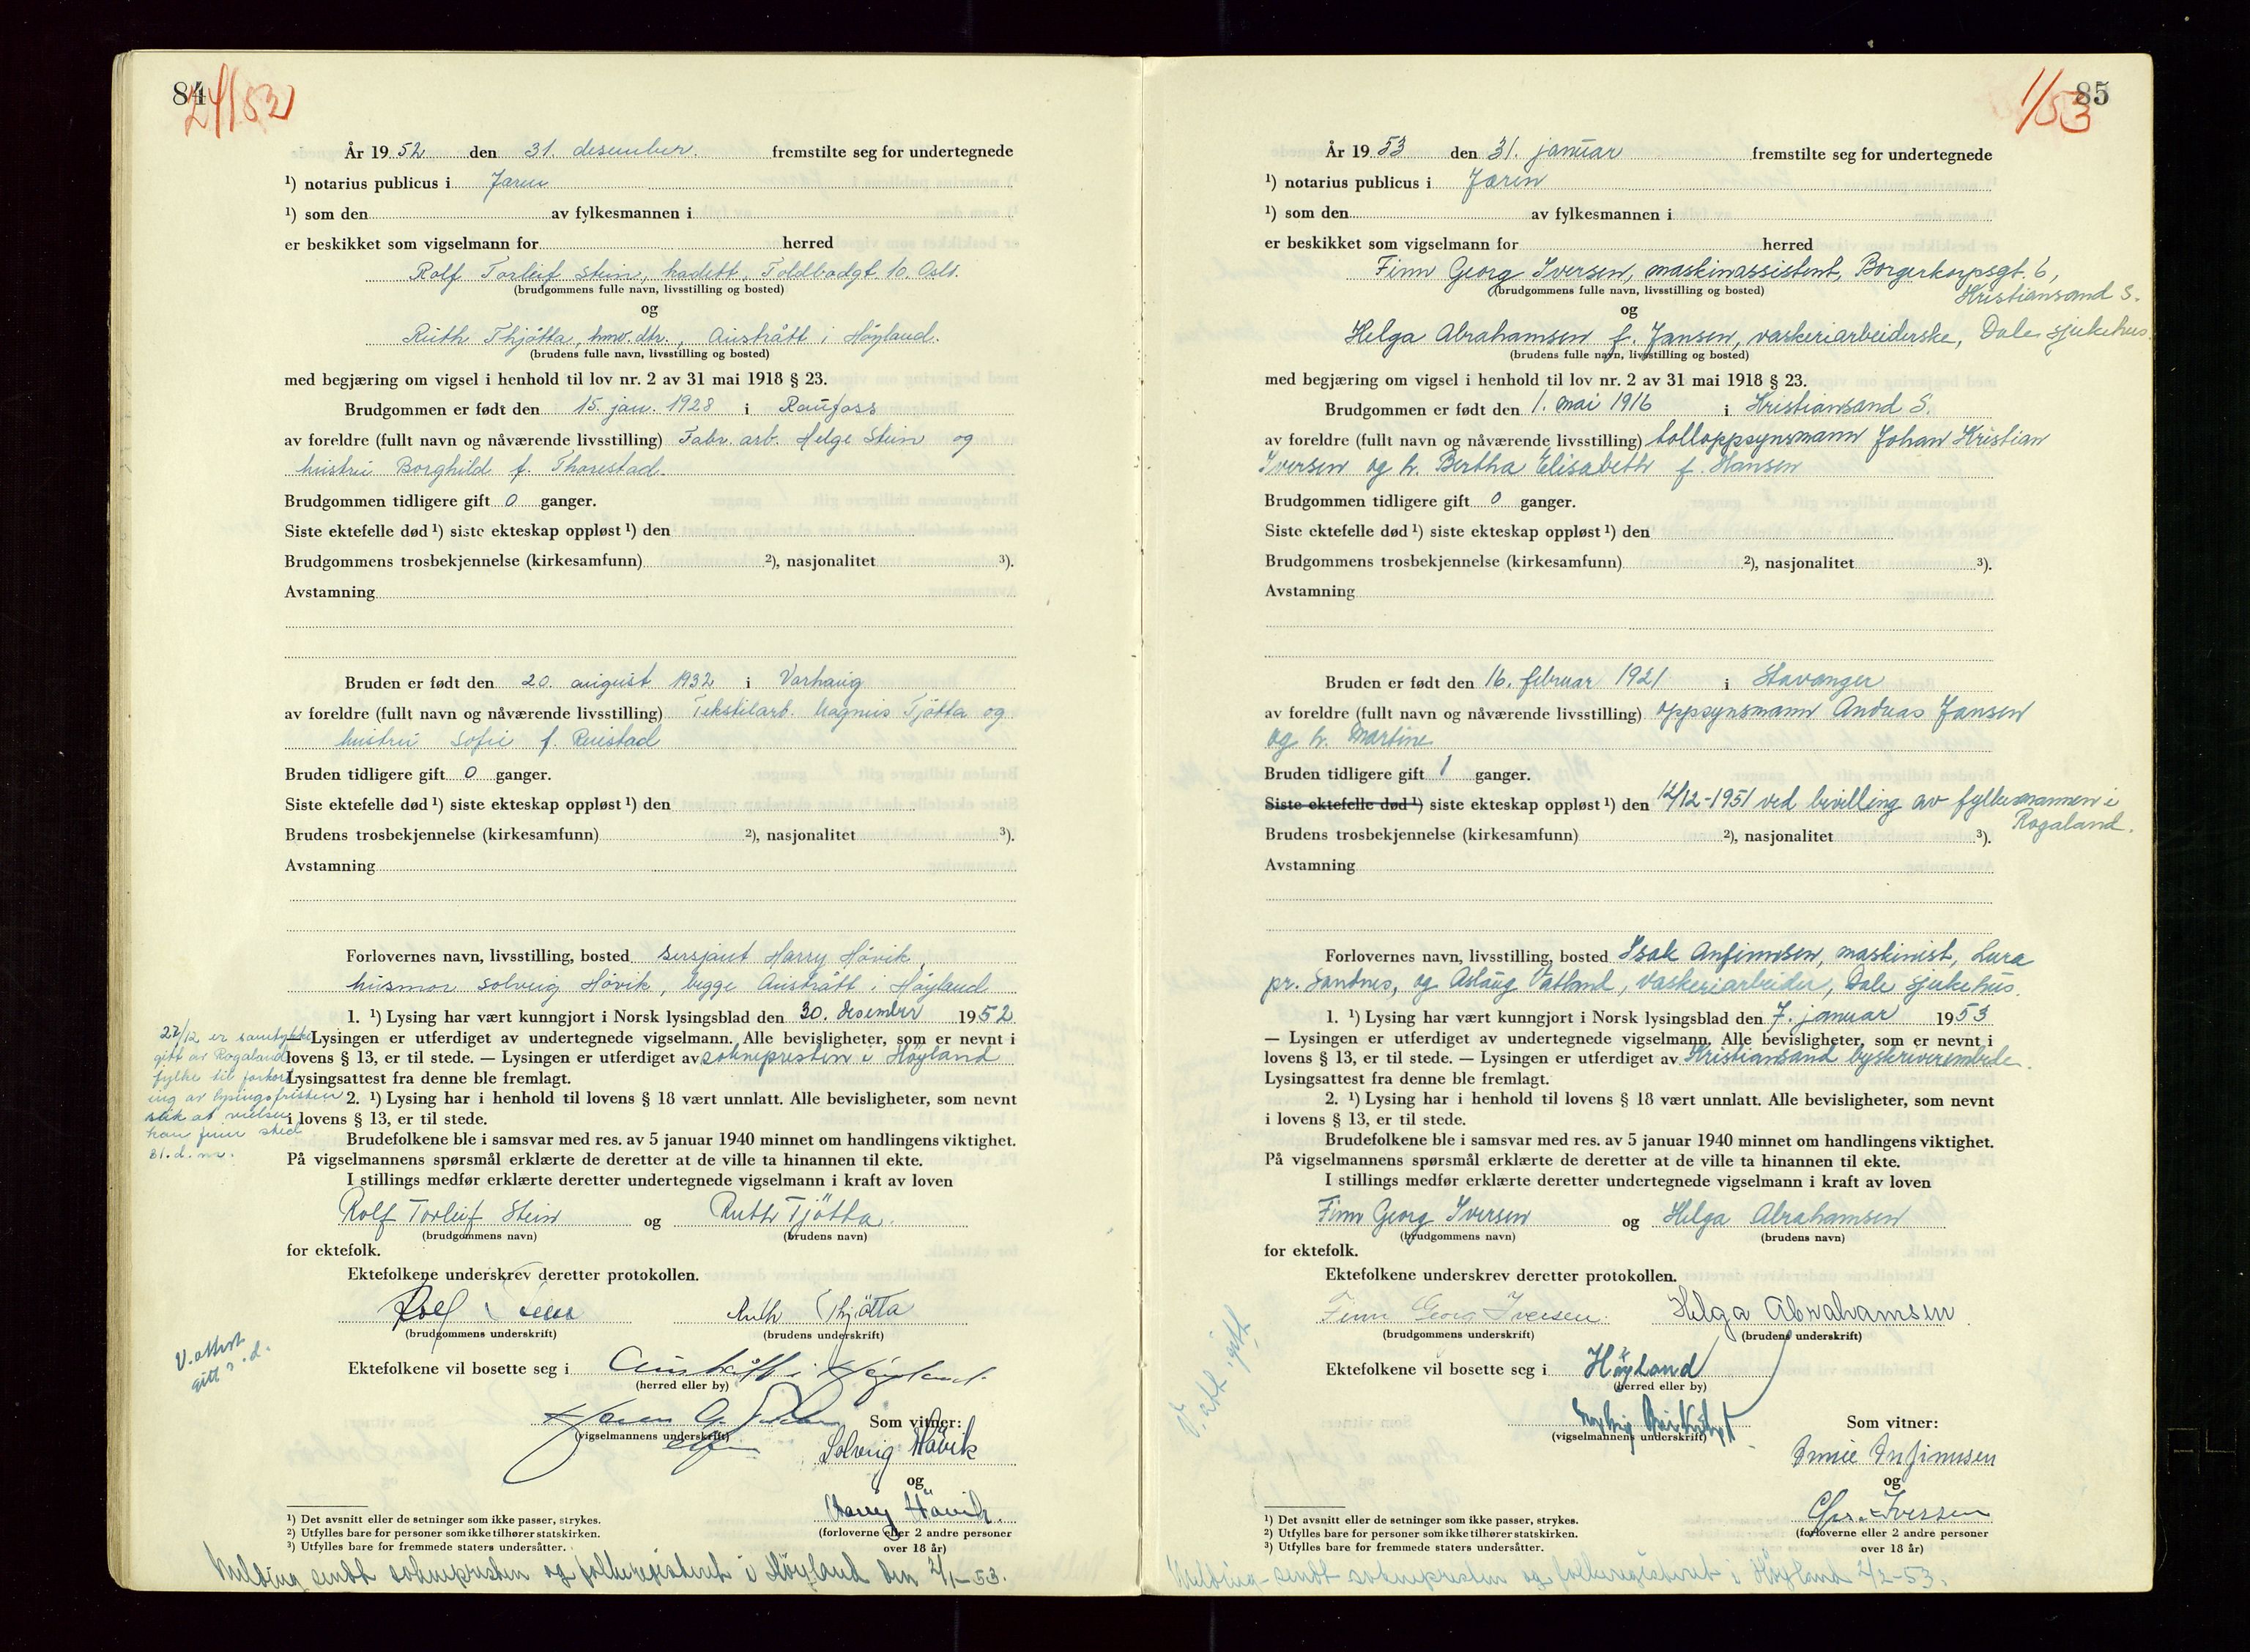 84
24/52
År 1952 den 31. desember. fremstilte seg for undertegnede
¹) notarius publicus i Jæren
¹) som den av fylkesmannen i
er beskikket som vigselmann for herred
Rolf Torleif Stein, kadett, Toldbodgt. 10. Oslo.
(brudgommens fulle navn, livsstilling og bosted)
og
Ruth Thjøtta, hmv. dtr., Austrått i Høyland.
(brudens fulle navn, livsstilling og bosted)
med begjæring om vigsel i henhold til lov nr. 2 av 31 mai 1918 § 23.
Brudgommen er født den 15. jan. 1928 i Raufoss
av foreldre (fullt navn og nåværende livsstilling) Fabr. arb. Helge Stein og
hustru Borghild f. Thorestad.
Brudgommen tidligere gift 0 ganger.
Siste ektefelle død ¹) siste ekteskap oppløst ¹) den
Brudgommens trosbekjennelse (kirkesamfunn) ²), nasjonalitet ³).
Avstamning
Bruden er født den 20. august 1932 i Varhaug
av foreldre (fullt navn og nåværende livsstilling) Tekstilarb. Magnus Tjøtta og
hustru Sofie f. Ruestad
Bruden tidligere gift 0 ganger.
Siste ektefelle død ¹) siste ekteskap oppløst ¹) den
Brudens trosbekjennelse (kirkesamfunn) ²), nasjonalitet ³).
Avstamning
Forlovernes navn, livsstilling, bosted Sersjant Harry Hövik,
husmor Solveig Hövik, begge Austrått i Høyland
1. ¹) Lysing har vært kunngjort i Norsk lysingsblad den 30. desember 1952
— Lysingen er utferdiget av undertegnede vigselmann. Alle bevisligheter, som er nevnt i
lovens § 13, er til stede. — Lysingen er utferdiget av soknepresten i Høyland
Lysingsattest fra denne ble fremlagt.
2. ¹) Lysing har i henhold til lovens § 18 vært unnlatt. Alle bevisligheter, som nevnt
i lovens § 13, er til stede.
27/12 er samtykke
gitt av Rogaland
fylke til forkort-
ing av lysingsfristen
slik at vielsen
kan finne sted
31. d. m.
Brudefolkene ble i samsvar med res. av 5 januar 1940 minnet om handlingens viktighet.
På vigselmannens spørsmål erklærte de deretter at de ville ta hinannen til ekte.
I stillings medfør erklærte deretter undertegnede vigselmann i kraft av loven
Rolf Torleif Stein og Ruth Tjøtta.
(brudgommens navn) (brudens navn)
for ektefolk.
Ektefolkene underskrev deretter protokollen.
Rolf Stein Ruth Thjötta
(brudgommens underskrift) (brudens underskrift)
V. attest
gitt s. d.
Ektefolkene vil bosette seg i Austrått i Høyland.
(herred eller by)
Som vitner:
(vigselmannens underskrift)
Solveig Hövik
og
Harry Hövik.
(forloverne eller 2 andre personer
over 18 år)
¹) Det avsnitt eller de setninger som ikke passer, strykes.
²) Utfylles bare for personer som ikke tilhører statskirken.
³) Utfylles bare for fremmede staters undersåtter.
Melding sendt soknepresten og folkeregisteret i Høyland den 2/1-53.
85
1/53
År 1953 den 31. januar fremstilte seg for undertegnede
¹) notarius publicus i Jæren
¹) som den av fylkesmannen i
er beskikket som vigselmann for herred
Finn Georg Iversen, maskinassistent, Borgerkorpsgt. 6,
Kristiansand S.
(brudgommens fulle navn, livsstilling og bosted)
og
Helga Abrahamsen f. Jansen, vaskeriarbeiderske, Dale sjukehus.
(brudens fulle navn, livsstilling og bosted)
med begjæring om vigsel i henhold til lov nr. 2 av 31 mai 1918 § 23.
Brudgommen er født den 1. mai 1916 i Kristiansand S.
av foreldre (fullt navn og nåværende livsstilling) tolloppsynsmann Johan Kristian
Iversen og h. Bertha Elisabeth f. Hansen
Brudgommen tidligere gift 0 ganger.
Siste ektefelle død ¹) siste ekteskap oppløst ¹) den
Brudgommens trosbekjennelse (kirkesamfunn) ²), nasjonalitet ³).
Avstamning
Bruden er født den 16. februar 1921 i Stavanger
av foreldre (fullt navn og nåværende livsstilling) oppsynsmann Andreas Jansen
og h. Martine
Bruden tidligere gift 1 ganger.
Siste ektefelle død ¹) siste ekteskap oppløst ¹) den 12/12-1951 ved bevilling av fylkesmannen i
Rogaland.
Brudens trosbekjennelse (kirkesamfunn) ²), nasjonalitet ³).
Avstamning
Forlovernes navn, livsstilling, bosted Isak Anfinnsen, maskinist, Lura
pr. Sandnes, og Aslaug Vatland, vaskeriarbeider, Dale sjukehus.
1. ¹) Lysing har vært kunngjort i Norsk lysingsblad den 7. januar 1953
— Lysingen er utferdiget av undertegnede vigselmann. Alle bevisligheter, som er nevnt i
lovens § 13, er til stede. — Lysingen er utferdiget av Kristiansand byskriverembede.
Lysingsattest fra denne ble fremlagt.
2. ¹) Lysing har i henhold til lovens § 18 vært unnlatt. Alle bevisligheter, som nevnt
i lovens § 13, er til stede.
Brudefolkene ble i samsvar med res. av 5 januar 1940 minnet om handlingens viktighet.
På vigselmannens spørsmål erklærte de deretter at de ville ta hinannen til ekte.
I stillings medfør erklærte deretter undertegnede vigselmann i kraft av loven
Finn Georg Iversen og Helga Abrahamsen
(brudgommens navn) (brudens navn)
for ektefolk.
Ektefolkene underskrev deretter protokollen.
Finn Georg Iversen. Helga Abrahamsen
(brudgommens underskrift) (brudens underskrift)
V. att. gitt
Ektefolkene vil bosette seg i Høyland
(herred eller by)
Som vitner:
(vigselmannens underskrift)
Anfinnsen
og
Chr. Iversen
(forloverne eller 2 andre personer
over 18 år)
¹) Det avsnitt eller de setninger som ikke passer, strykes.
²) Utfylles bare for personer som ikke tilhører statskirken.
³) Utfylles bare for fremmede staters undersåtter.
Melding sendt soknepresten og folkeregisteret i Høyland 2/2-53.